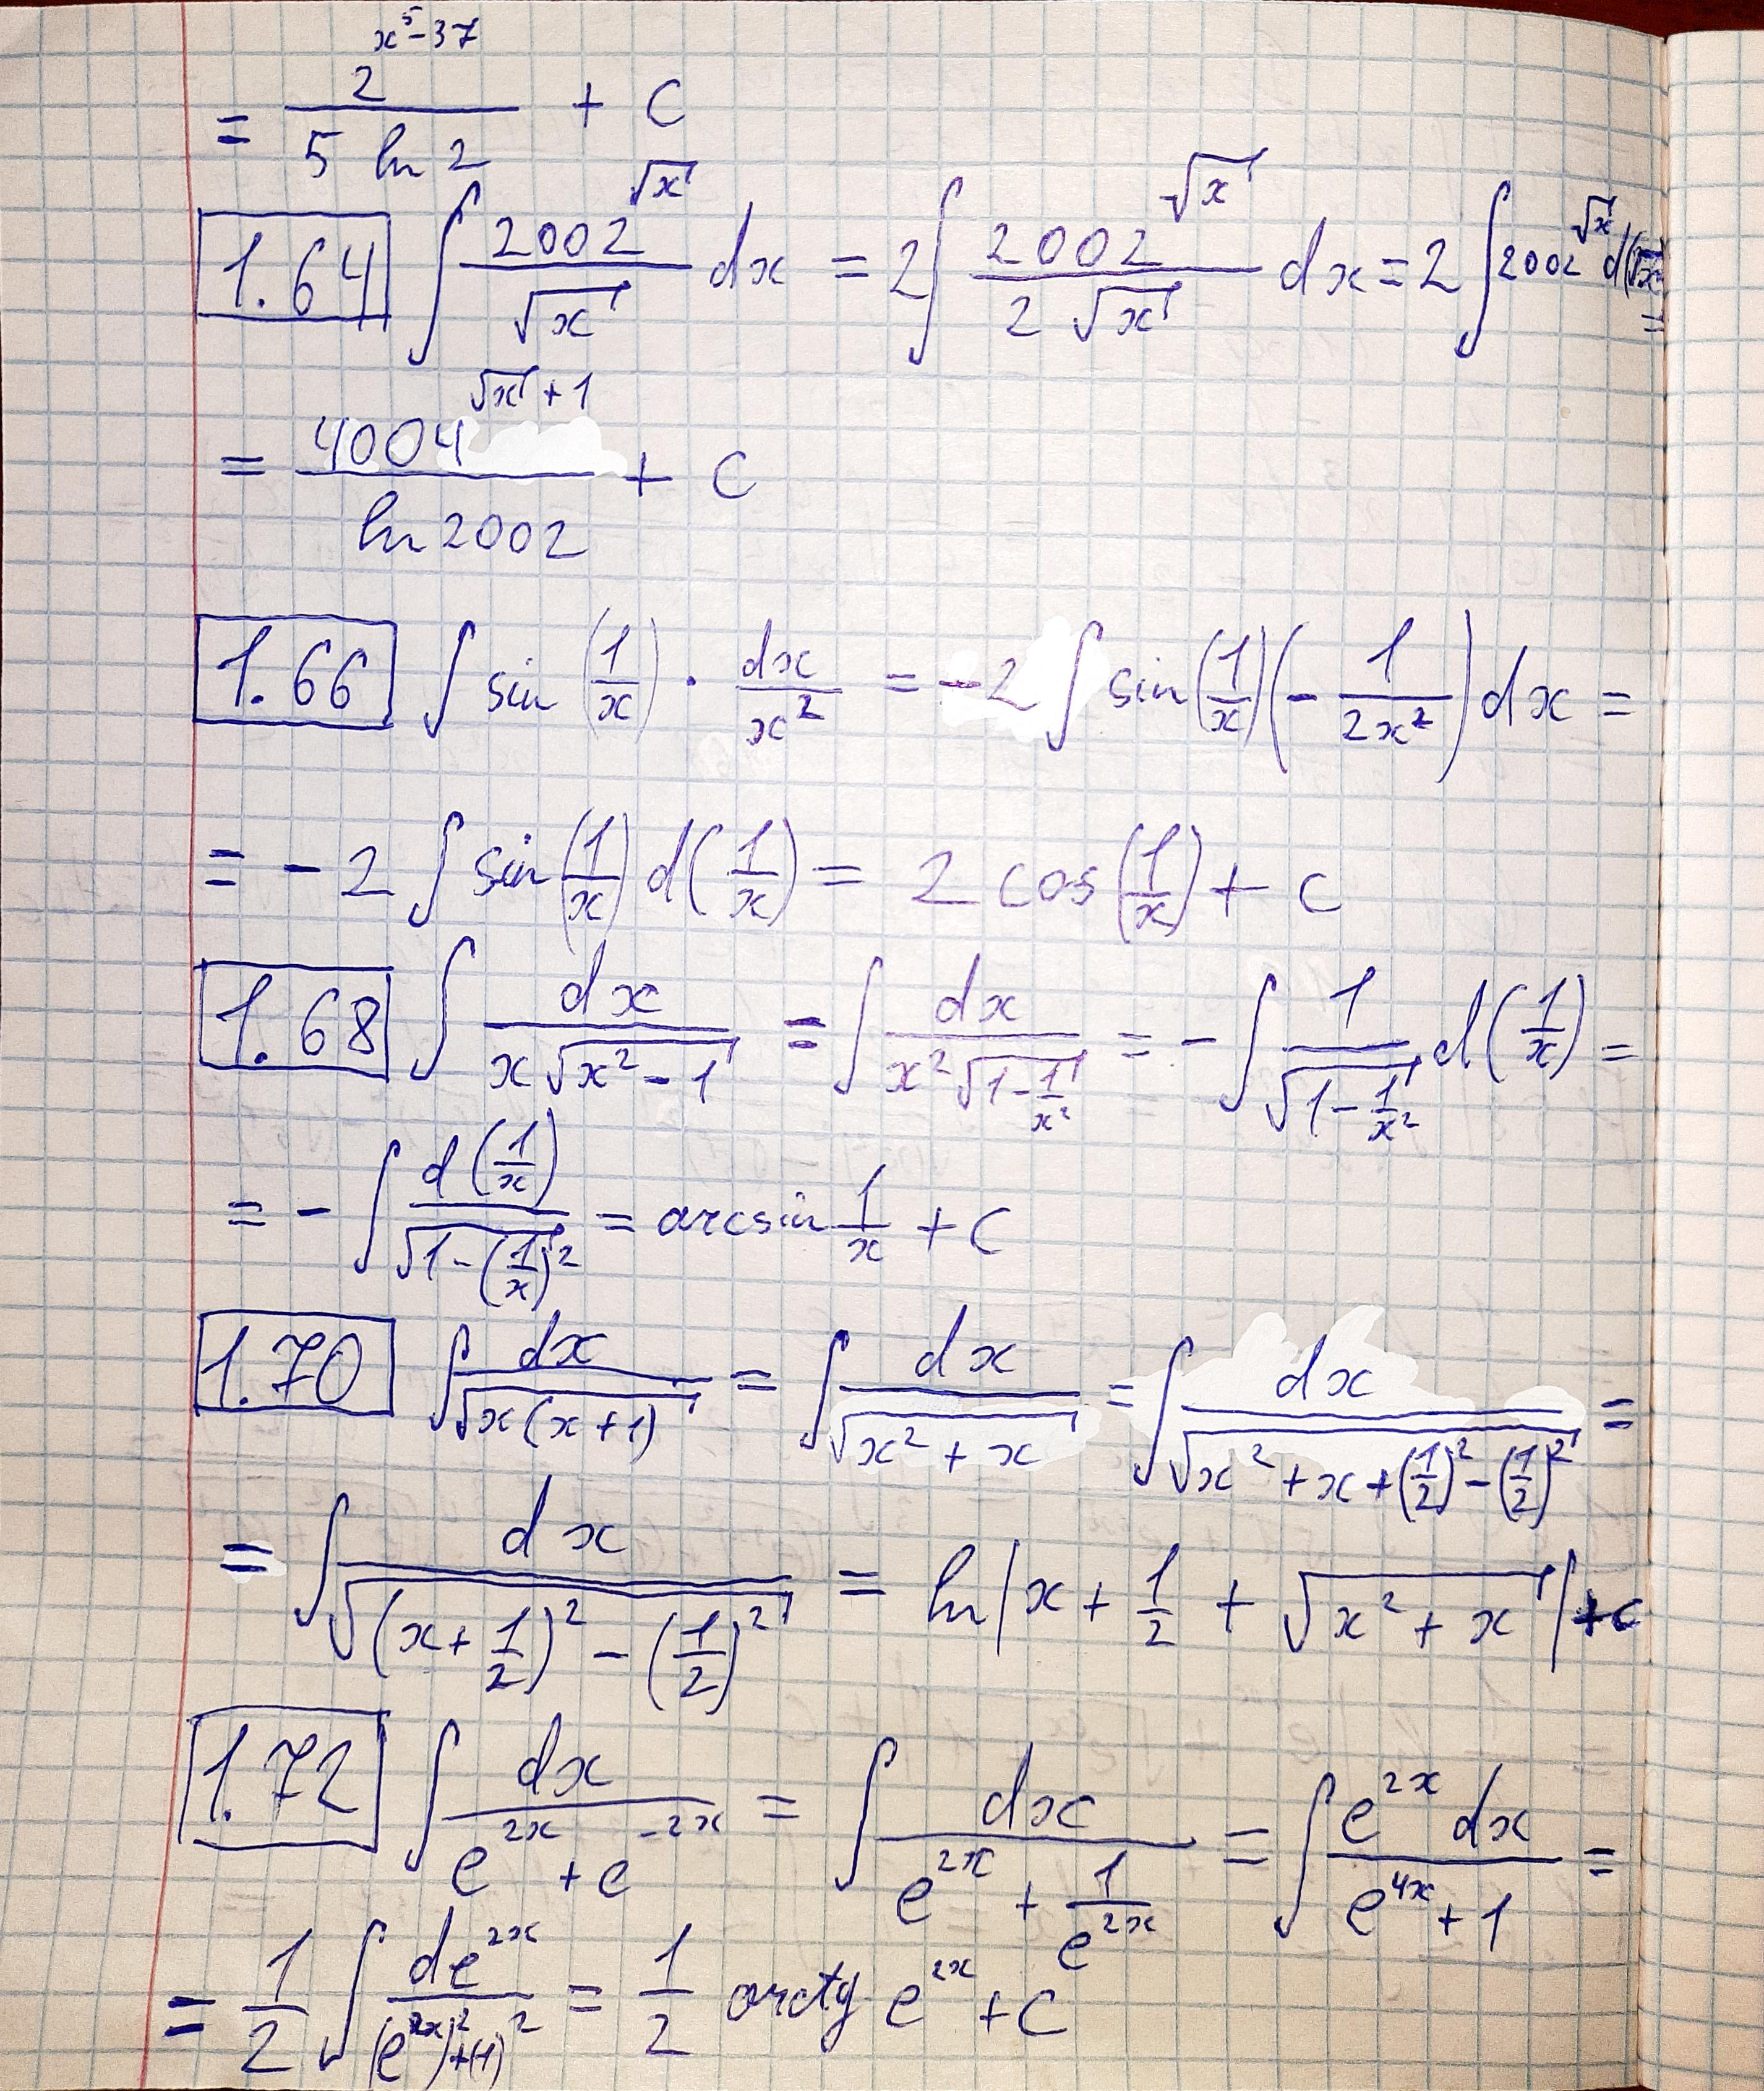 = \frac{2^{x^5-37}}{5 ln 2} + C
1.64 ∫ \frac{2002^{√x}}{√x} dx = 2∫ \frac{2002^{√x}}{2√x} dx = 2∫ 2002^{√x} d(√x) =
= \frac{4004^{√x+1}}{ln 2002} + C
1.66 ∫ sin(\frac{1}{x}) · \frac{dx}{x^2} = -2∫ sin(\frac{1}{x})(-\frac{1}{2x^2})dx =
= -2∫ sin(\frac{1}{x}) d(\frac{1}{x}) = 2 cos(\frac{1}{x}) + C
1.68 ∫ \frac{dx}{x√(x^2-1)} = ∫ \frac{dx}{x^2√(1-\frac{1}{x^2})} = -∫ \frac{1}{√(1-\frac{1}{x^2})} d(\frac{1}{x}) =
= -∫ \frac{d(\frac{1}{x})}{√(1-(\frac{1}{x})^2)} = arcsin \frac{1}{x} + C
1.70 ∫ \frac{dx}{√(x(x+1))} = ∫ \frac{dx}{√(x^2+x)} = ∫ \frac{dx}{√(x^2+x+(\frac{1}{2})^2-(\frac{1}{2})^2)} =
= ∫ \frac{dx}{√((x+\frac{1}{2})^2-(\frac{1}{2})^2)} = ln|x+\frac{1}{2}+√(x^2+x)|+C
1.72 ∫ \frac{dx}{e^{2x}+e^{-2x}} = ∫ \frac{dx}{e^{2x}+\frac{1}{e^{2x}}} = ∫ \frac{e^{2x} dx}{e^{4x}+1} =
= \frac{1}{2} ∫ \frac{de^{2x}}{(e^{2x})^2+(1)^2} = \frac{1}{2} arctg e^{2x} + C